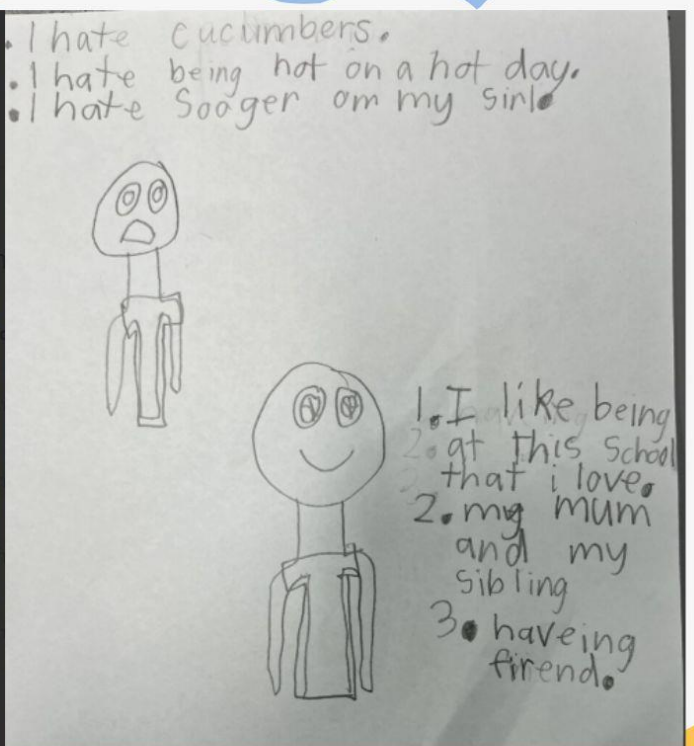 . I hate cucumbers.
. I hate being hot on a hot day.
. I hate Soager om my sirl.
1. I like being
at this School
that i love.
2. my mum
and my
sibling
3. haveing
firend.